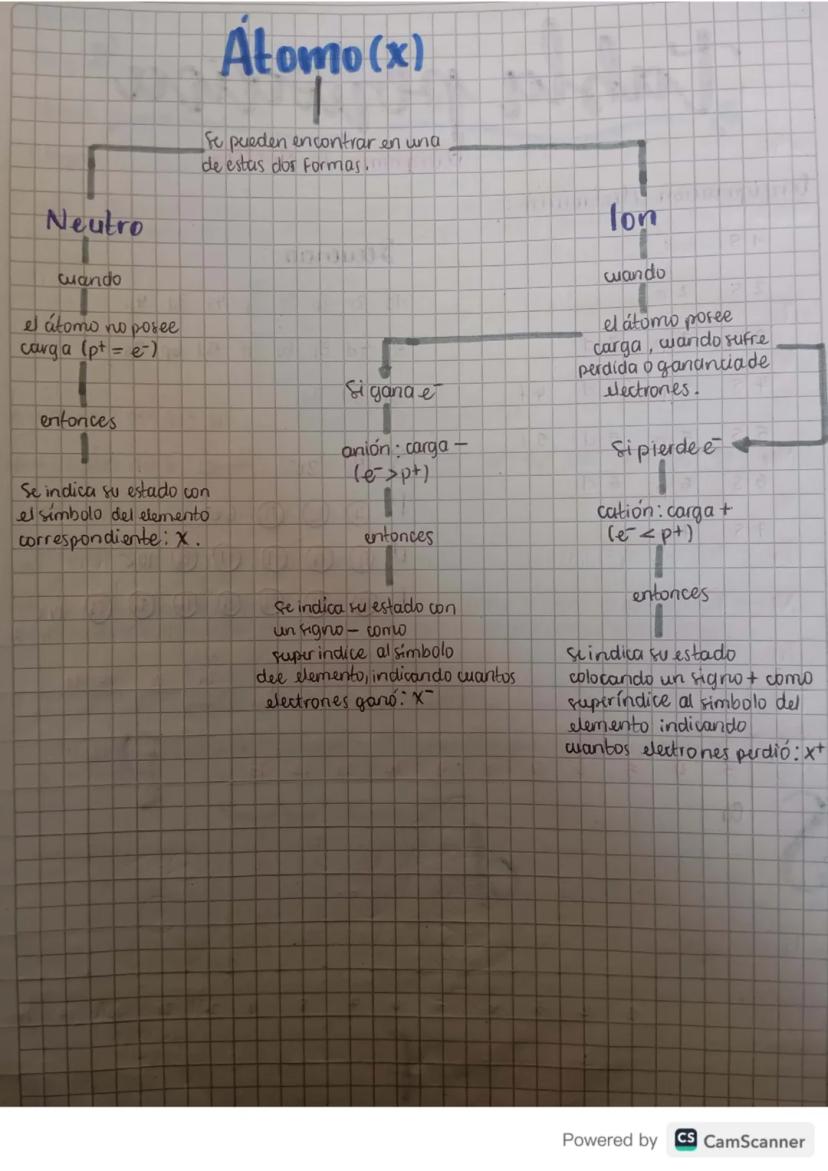 Átomo(x)
Se pueden encontrar en una
de estas dos formas.
Neutro
cuando
el átomo no posee
carga (p+ = e-)
entonces
Se indica su estado con
el símbolo del elemento
correspondiente: X.
Ion
cuando
el átomo posee
carga, cuando sufre
perdida o ganancia de
electrones.
Si gana e-
anión: carga -
(e- > p+)
entonces
se indica su estado con
un signo - como
superíndice al símbolo
dee elemento, indicando cuantos
electrones ganó: X-
Si pierde e-
catión: carga +
(e- < p+)
entonces
se indica su estado
colocando un signo + como
superíndice al simbolo del
elemento indicando
cuantos electrones perdió: X+
Powered by CS CamScanner